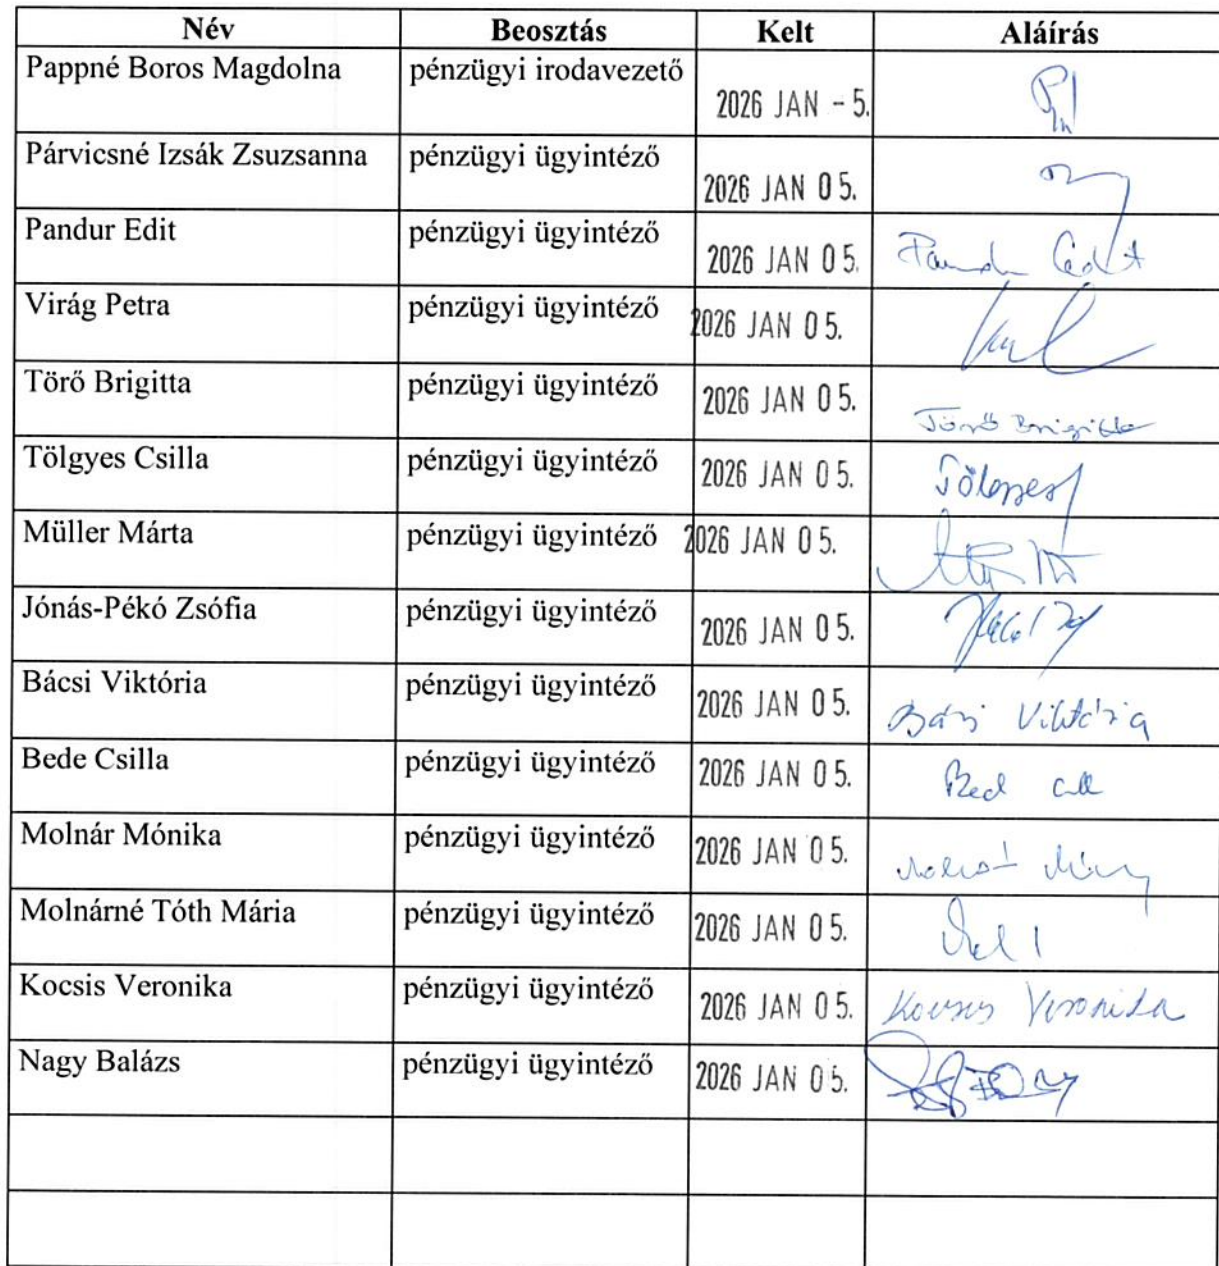 Név Beosztás Kelt Aláírás
Pappné Boros Magdolna pénzügyi irodavezető 2026 JAN - 5.
Párvicsné Izsák Zsuzsanna pénzügyi ügyintéző 2026 JAN 05.
Pandur Edit pénzügyi ügyintéző 2026 JAN 05.
Virág Petra pénzügyi ügyintéző 2026 JAN 05.
Törő Brigitta pénzügyi ügyintéző 2026 JAN 05. Törő Brigitta
Tölgyes Csilla pénzügyi ügyintéző 2026 JAN 05. Tölgyes
Müller Márta pénzügyi ügyintéző 2026 JAN 05.
Jónás-Pékó Zsófia pénzügyi ügyintéző 2026 JAN 05.
Bácsi Viktória pénzügyi ügyintéző 2026 JAN 05. Bácsi Viktória
Bede Csilla pénzügyi ügyintéző 2026 JAN 05.
Molnár Mónika pénzügyi ügyintéző 2026 JAN 05.
Molnárné Tóth Mária pénzügyi ügyintéző 2026 JAN 05.
Kocsis Veronika pénzügyi ügyintéző 2026 JAN 05. Kocsis Veronika
Nagy Balázs pénzügyi ügyintéző 2026 JAN 05.